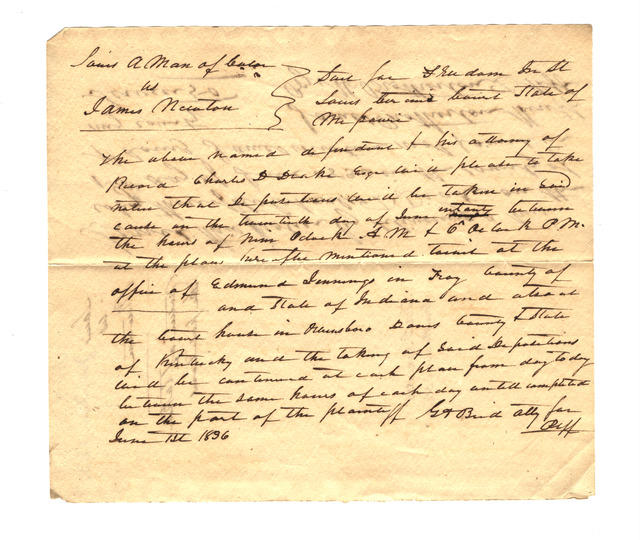 Louis A Man of Color
vs
James Newton
Suit for Freedom In St
Louis Circuit Court State of
Missouri
The above named defendant & his attorney of
Record Charles D Drake Esqr will please to take
notice that Depositions will be taken in said
cause on the twentieth day of June instant between
the hours of Nine Oclock A M & 6 Oclock P M.
at the places hereafter mentioned towit at the
office of Edmund Jennings in Troy County of
and State of Indiana and also at
the Court house in Owensboro Daves County & State
of Kentucky and the taking of said Depositions
will be continued at each place from day to day
between the same hours of each day untill completed
on the part of the plaintiff
Bird atty for
Plff
June 1st 1836